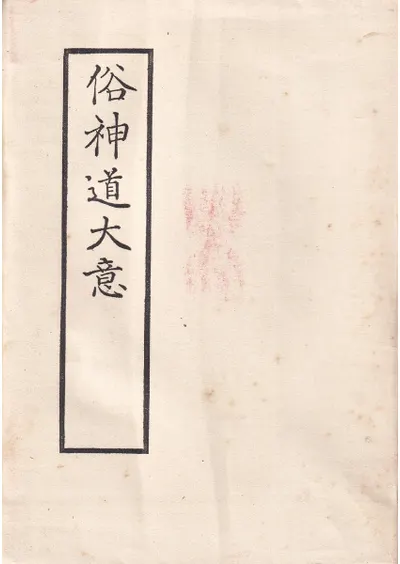 俗神道大意